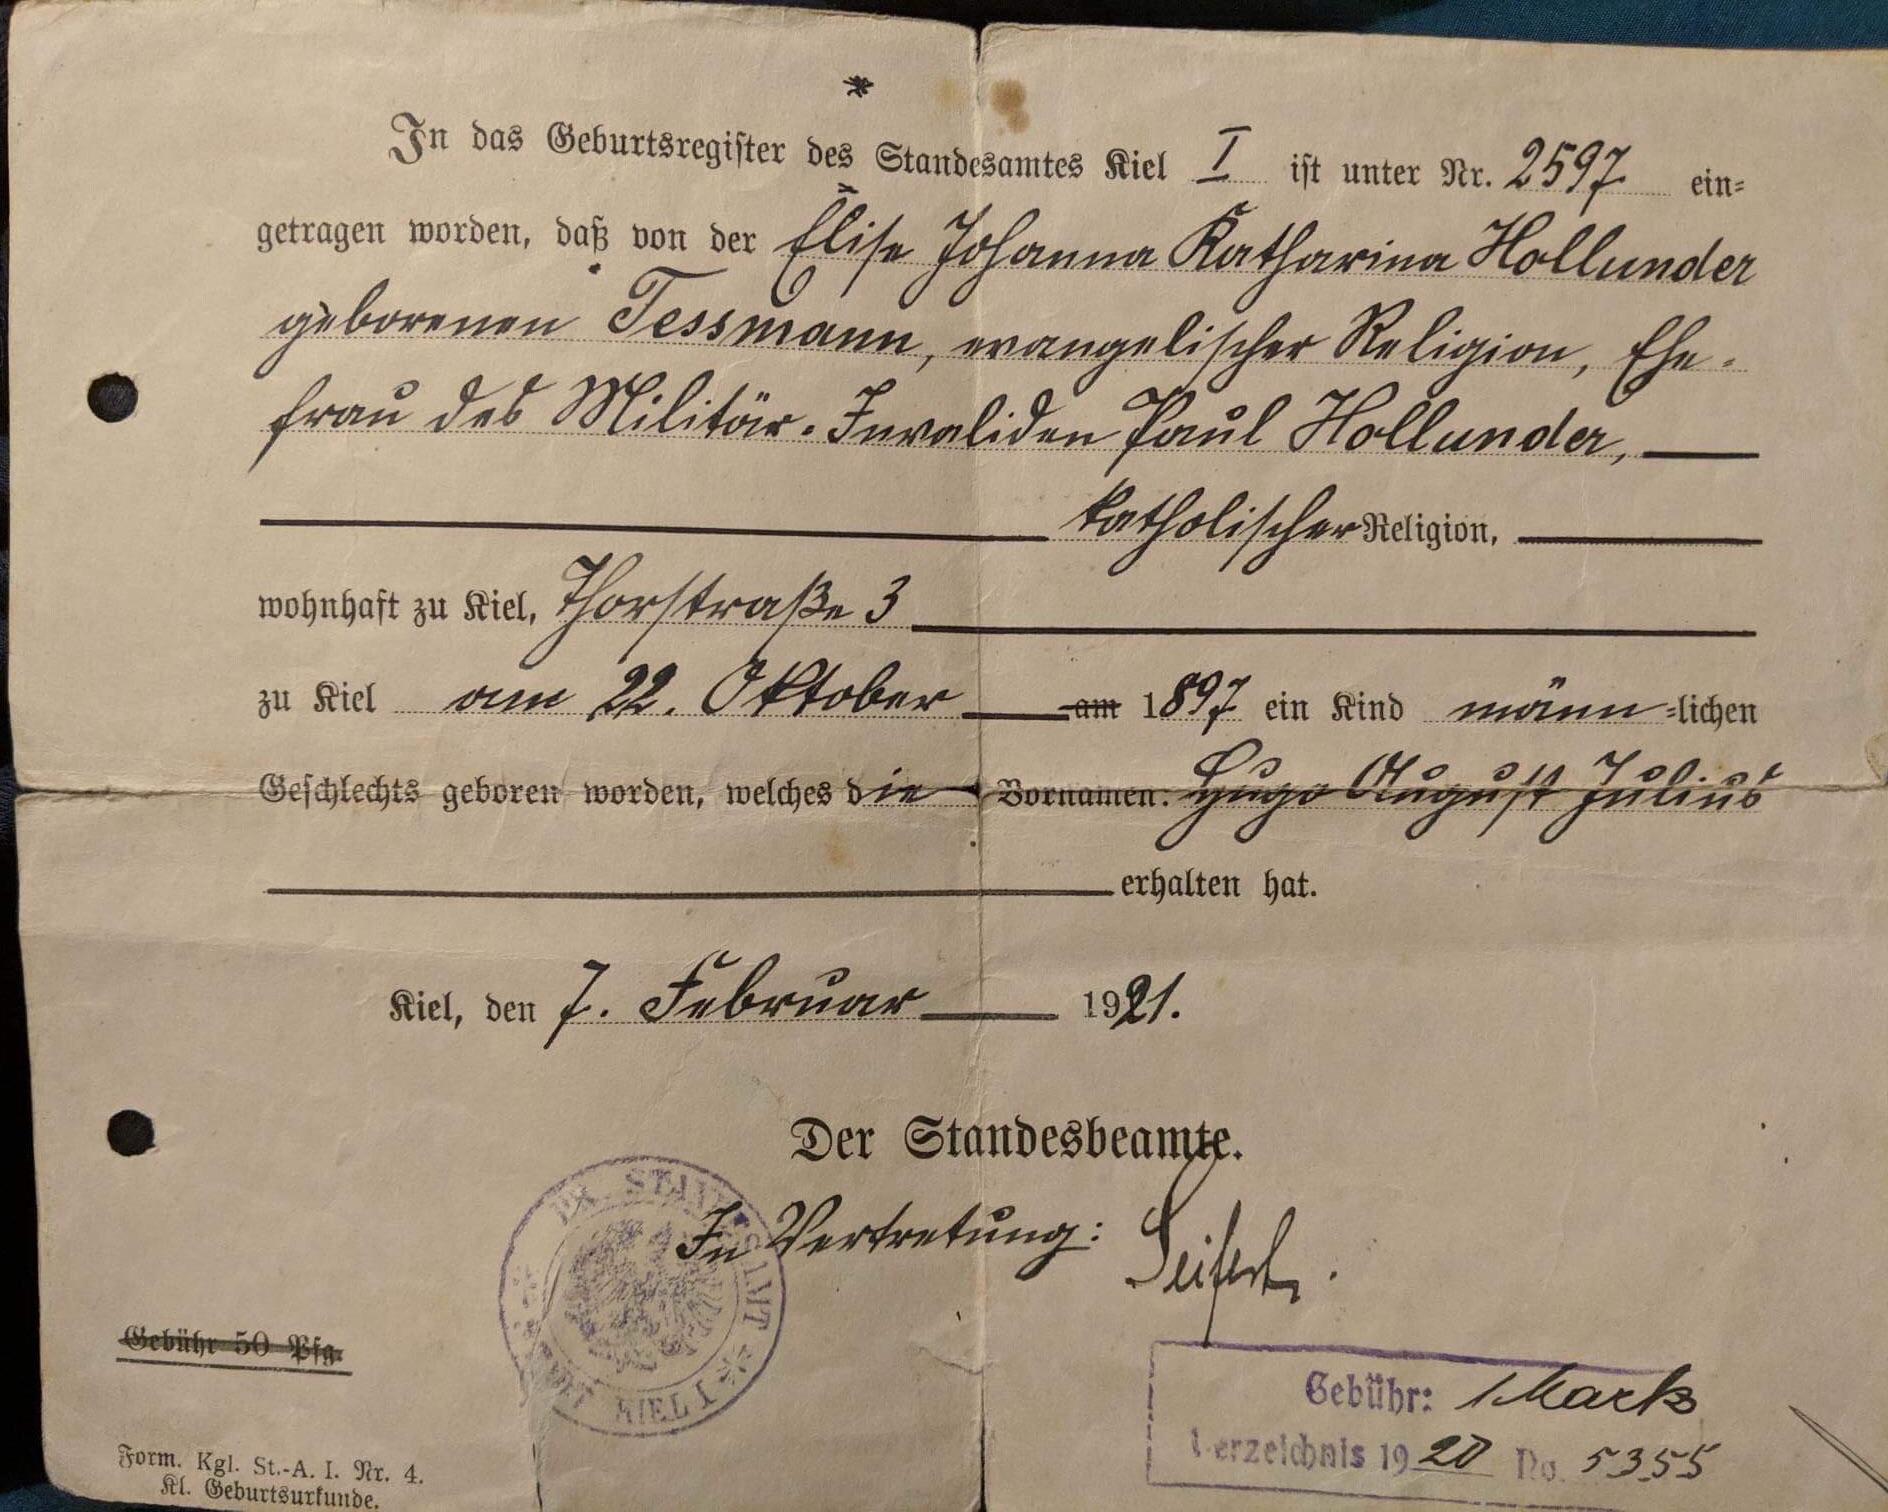 *
In das Geburtsregister des Standesamtes Kiel I ist unter Nr. 2597 ein=
getragen worden, daß von der Elise Johanna Katharina Hollunder
geborenen Tessmann, evangelischer Religion, Ehe-
frau des Militär-Invaliden Paul Hollunder,
katholischer Religion,
wohnhaft zu Kiel, Thorstraße 3
zu Kiel am 22. Oktober am 1897 ein Kind männ=lichen
Geschlechts geboren worden, welches die Vornamen: Hugo August Julius
erhalten hat.
Kiel, den 7. Februar 1921.
Der Standesbeamte.
In Vertretung: Seifert.
KIEL I
Gebühr 50 Pfg.
Gebühr: 1 Mark
Verzeichnis 1920 No. 5355
Form. Kgl. St.-A. I. Nr. 4.
Kl. Geburtsurkunde.